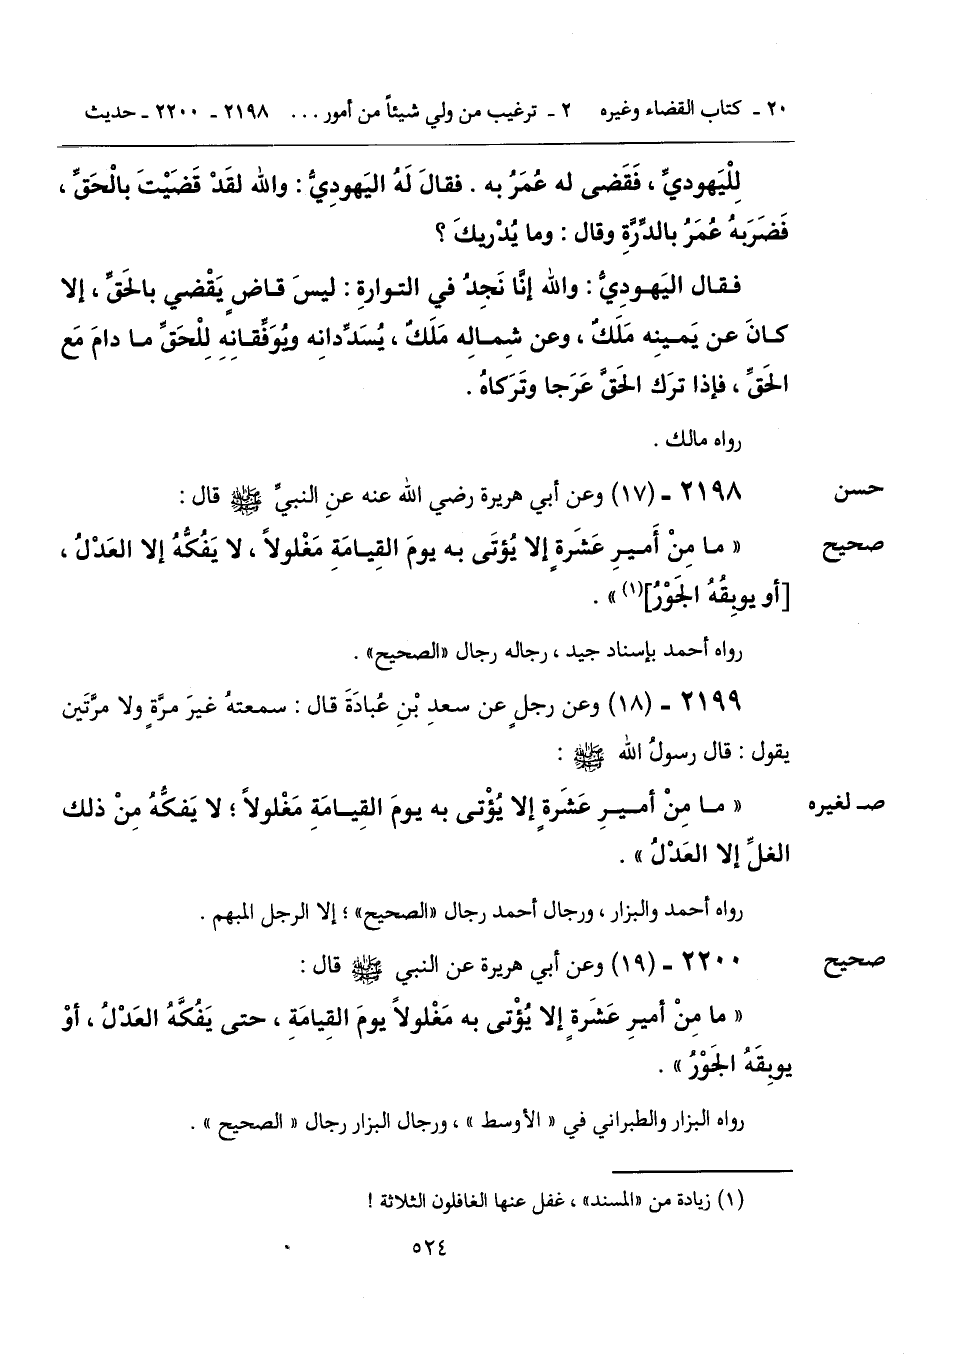 ٢٠ ـ كتاب القضاء وغيره ٢ ـ ترغيب من ولي شيئاً من أمور ... ٢١٩٨ ـ ٢٢٠٠ ـ حديث
لِلْيَهوديِّ ، فَقَضى له عُمَرُ به . فقالَ لَهُ اليَهودِيُّ : والله لقَدْ قَضَيْتَ بالْحَقِّ ،
فَضَرَبهُ عُمَرُ بالدِّرَّةِ وقال : وما يُدْريكَ ؟
فـقـال اليَهـودِيُّ : والله إنَّا نَجِدُ في التـوارةِ : ليسَ قـاضٍ يَقْضي بـالحَقِّ ، إلا
كـانَ عن يَمـينِه مَلَكٌ ، وعن شِمـالِه مَلَكٌ ، يُسَدِّدانِه ويُوَفِّقـانِهِ لِلْحَقِّ مـا دامَ مَع
الحَقِّ ، فإذا ترَك الحَقَّ عَرَجا وتَرَكاهُ .
رواه مالك .
حسن ٢١٩٨ ـ (١٧) وعن أبي هريرة رضي الله عنه عنِ النبيِّ ﷺ قال :
صحيح « مـا مِنْ أَمـيرِ عَشَرةٍ إلا يُؤتَى بـه يومَ القِيـامَةِ مَغْلولاً ، لا يَفُكُّهُ إلا العَدْلُ ،
[أو يوبِقُهُ الجَوْرُ](١) » .
رواه أحمد بإسناد جيد ، رجاله رجال «الصحيح» .
٢١٩٩ ـ (١٨) وعن رجلٍ عن سعدِ بْنِ عُبادَةَ قال : سمعتهُ غيرَ مرَّةٍ ولا مرَّتَين
يقول : قال رسولُ الله ﷺ :
صـ لغيره « مـا مِنْ أمـيرِ عَشَرةٍ إلا يُؤْتى به يومَ القِيـامَةِ مَغْلولاً ؛ لا يَفكُّهُ مِنْ ذلك
الغلِّ إلا العَدْلُ » .
رواه أحمد والبزار ، ورجال أحمد رجال «الصحيح» ؛ إلا الرجل المبهم .
صحيح ٢٢٠٠ ـ (١٩) وعن أبي هريرة عن النبي ﷺ قال :
« ما مِنْ أميرِ عَشَرةٍ إلا يُؤْتى به مَغْلولاً يومَ القِيامَةِ ، حتى يَفُكَّهُ العَدْلُ ، أوْ
يوبِقَهُ الجَوْرُ » .
رواه البزار والطبراني في « الأوسط » ، ورجال البزار رجال « الصحيح » .
(١) زيادة من «المسند» ، غفل عنها الغافلون الثلاثة !
٥٢٤